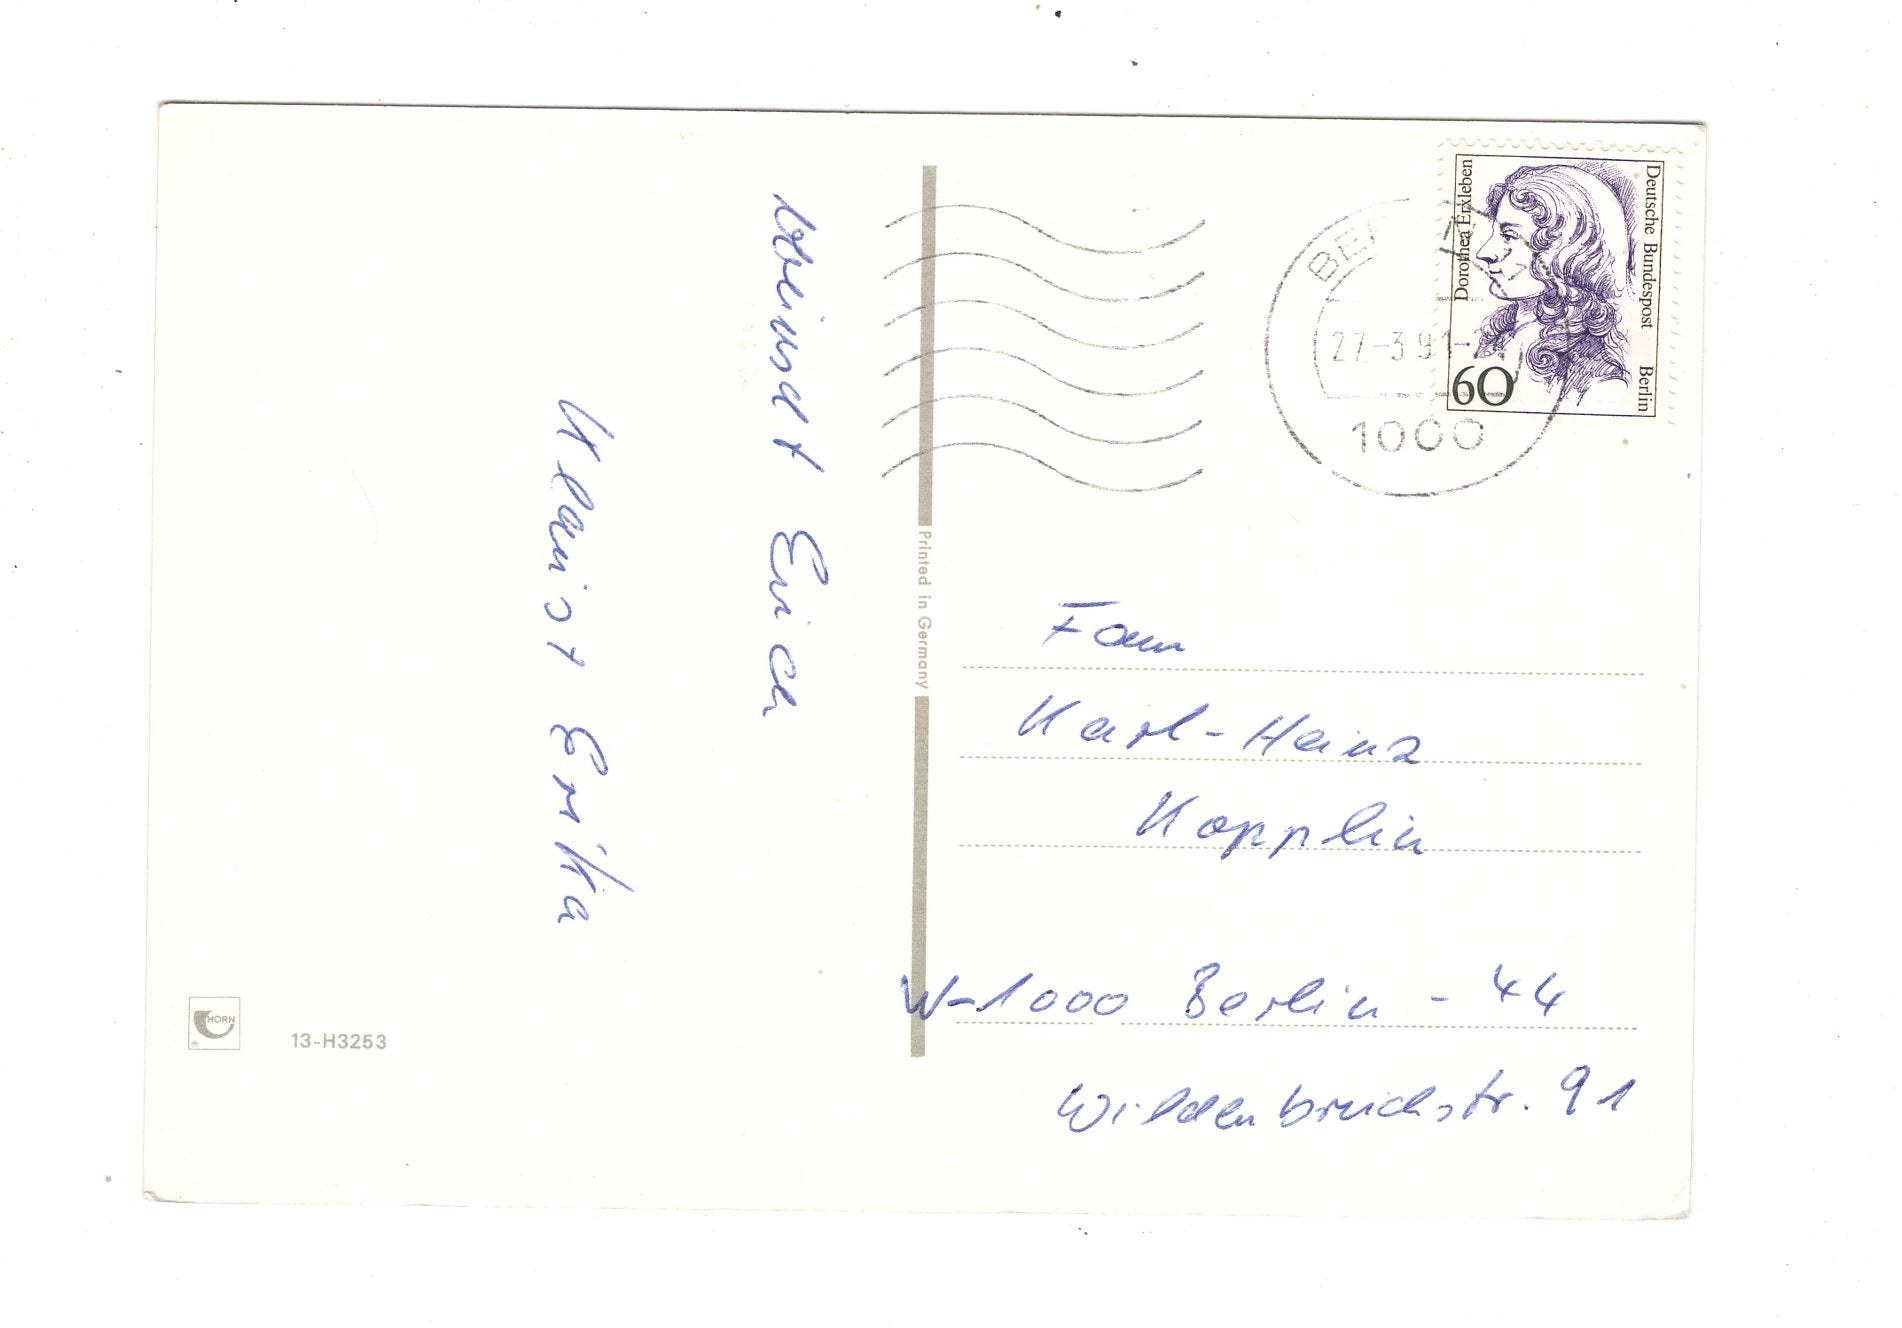 wünscht Erich
Klaus + Erika
Printed in Germany
HORN
13-H3253
Deutsche Bundespost Berlin
Dorothea Erxleben
60
27.-3.91
1000
Fam
Karl-Heinz
Kopplin
W-1000 Berlin - 44
Wildenbruchstr. 91